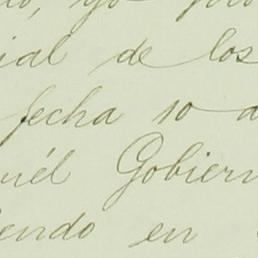 ial de los
fecha 10 d
uél Gobiern
iendo en